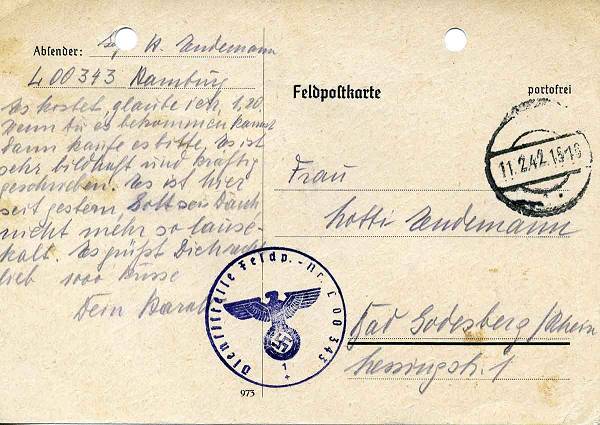 Absender: W. Endemann
L 00343 Hamburg
Es kostet, glaube ich, 1,20.
Wenn Du es bekommen kannst
dann kaufe es bitte, Es ist
sehr bildhaft und kräftig
geschrieben. Es ist hier
seit gestern, Gott sei Dank
nicht mehr so lause-
kalt. Es grüßt Dich sehr
lieb 1000 Küsse
Dein
Feldpostkarte
portofrei
11.2.42.15-16
Frau
Lotti Endemann
Bad Godesberg/Rhein
Lessingstr. 1
Dienststelle Feldp.-Nr. L 00343
1
973